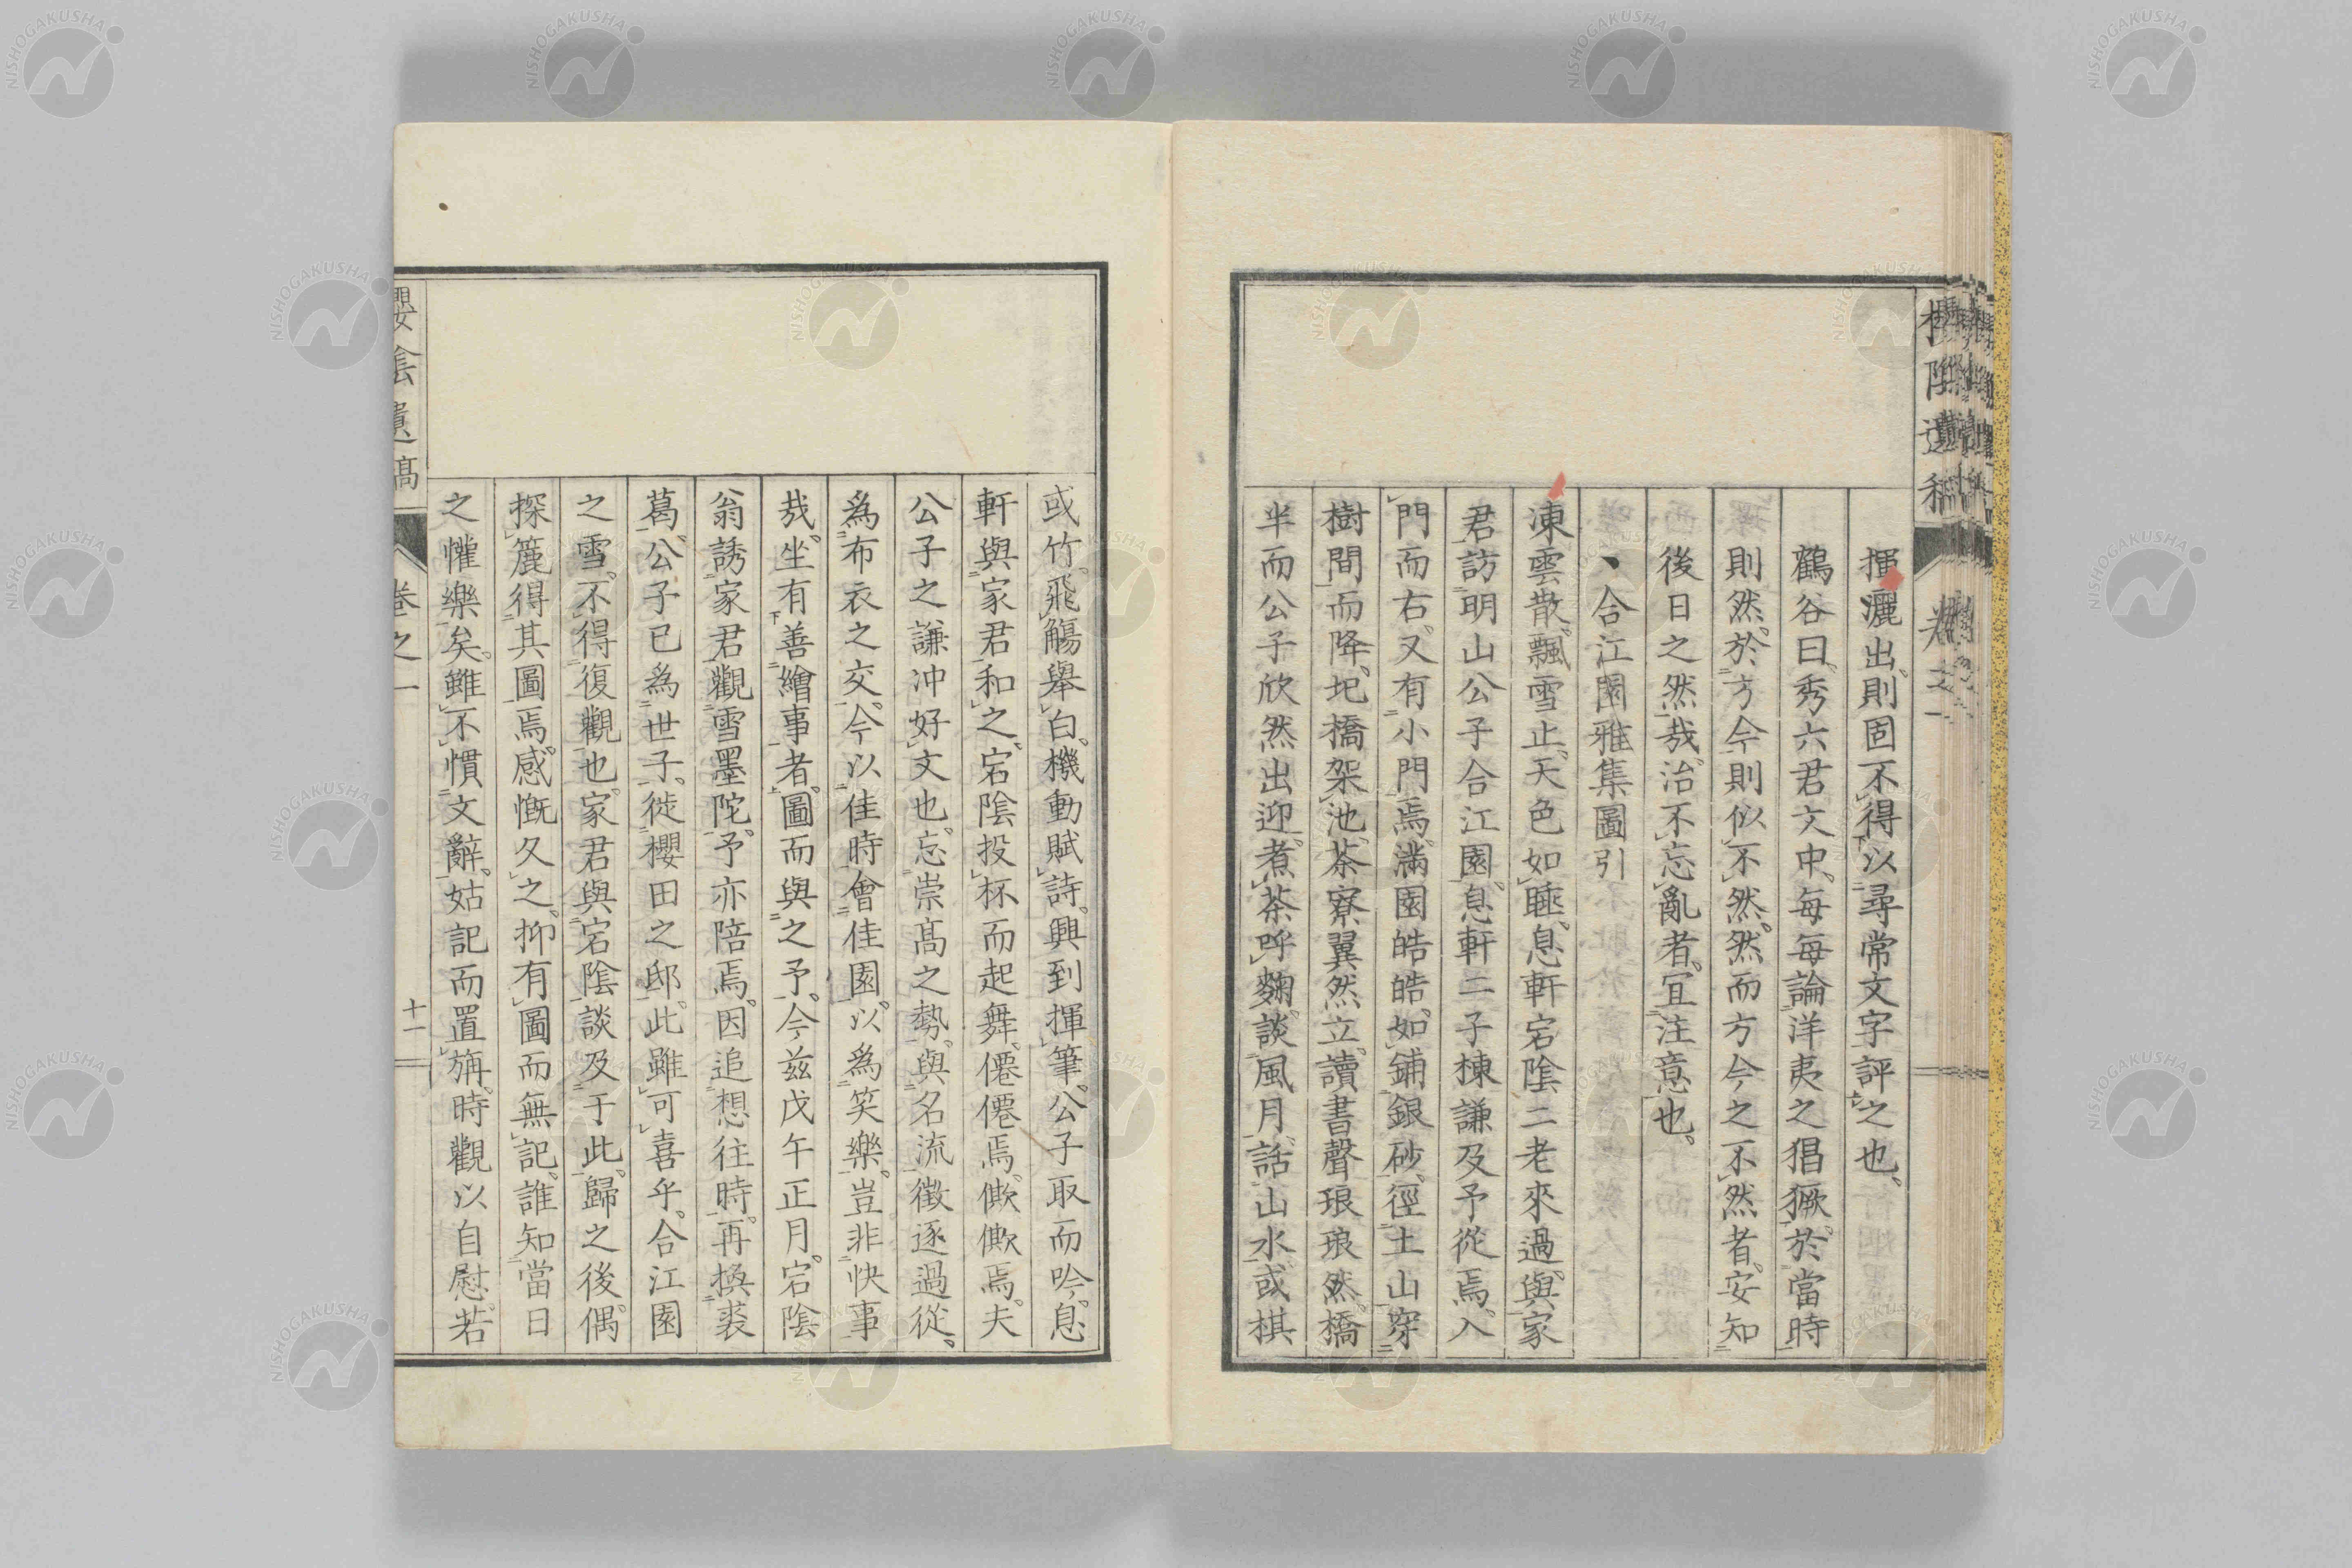 揮灑出、則固不得以尋常文字評之也、
鶴谷曰、秀六君文中、每每論洋夷之猖獗、於當時
則然、於方今則似不然、然而方今之不然者、安知
後日之然哉、治不忘亂者、宜注意也、
、合江園雅集圖引
凍雲散、飄雪止、天色如睡、息軒宕陰二老來過、與家
君訪明山公子合江園、息軒二子棟謙及予從焉、入
門而右、又有小門焉、滿園皓皓、如鋪銀砂、徑土山穿
樹間而降、圯橋架池、茶寮翼然立、讀書聲琅琅然、橋
半而公子欣然出迎、煮茶呼麴、談風月、話山水、或棋
或竹、飛觴舉白、機動賦詩、興到揮筆、公子取而吟、息
軒與家君和之、宕陰投杯而起舞、僊僊焉、僛僛焉、夫
公子之謙冲好文也、忘崇髙之勢、與名流徵逐過從、
為布衣之交、今以佳時會佳園、以為笑樂、豈非快事
哉、坐有善繪事者、圖而與之予、今茲戊午正月、宕陰
翁誘家君觀雪墨陀、予亦陪焉、因追想往時、再換裘
葛、公子已為世子、徙櫻田之邸、此雖可喜乎、合江園
之雪、不得復觀也、家君與宕陰談及于此、歸之後、偶
探簏得其圖焉、感慨久之、抑有圖而無記、誰知當日
之懽樂矣、雖不慣文辭、姑記而置旃、時觀以自慰、若
櫻陰遺稿
卷之一
十一